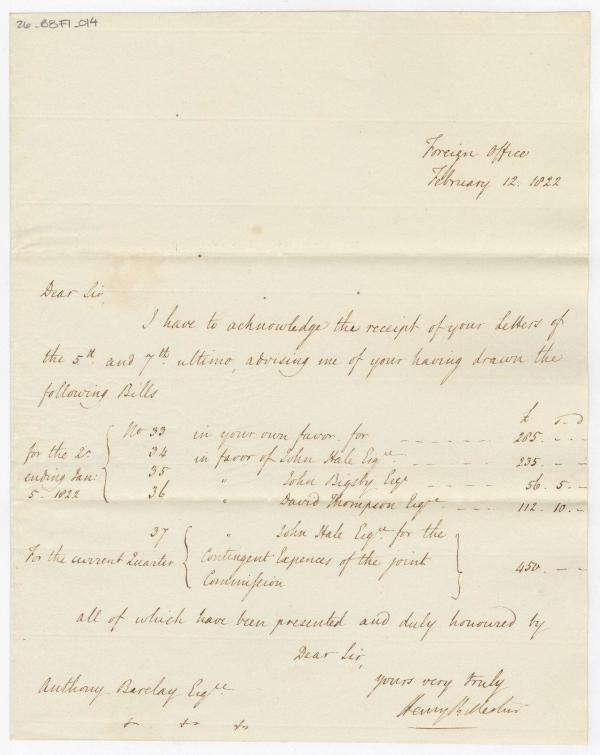 26_BBF1_014
Foreign Office
February 12. 1822
Dear Sir,
I have to acknowledge the receipt of your Letters of
the 5th and 7th ultimo, advising me of your having drawn the
following Bills
£ s. d
No 33 in your own favor for - - - - 285. - -
for the Qr 34 in favor of John Hale Esqre - - - 235. - -
ending Jan: 35 " John Bigsby Esqr - - - 56. 5. -
5. 1822 36 " David Thompson Esqre - - - 112. 10. -
37 " John Hale Esqre for the
For the current Quarter Contingent Expences of the joint 450. - -
Commission
all of which have been presented and duly honoured by
Dear Sir,
yours very truly
Anthony Barclay Esqre
Henry